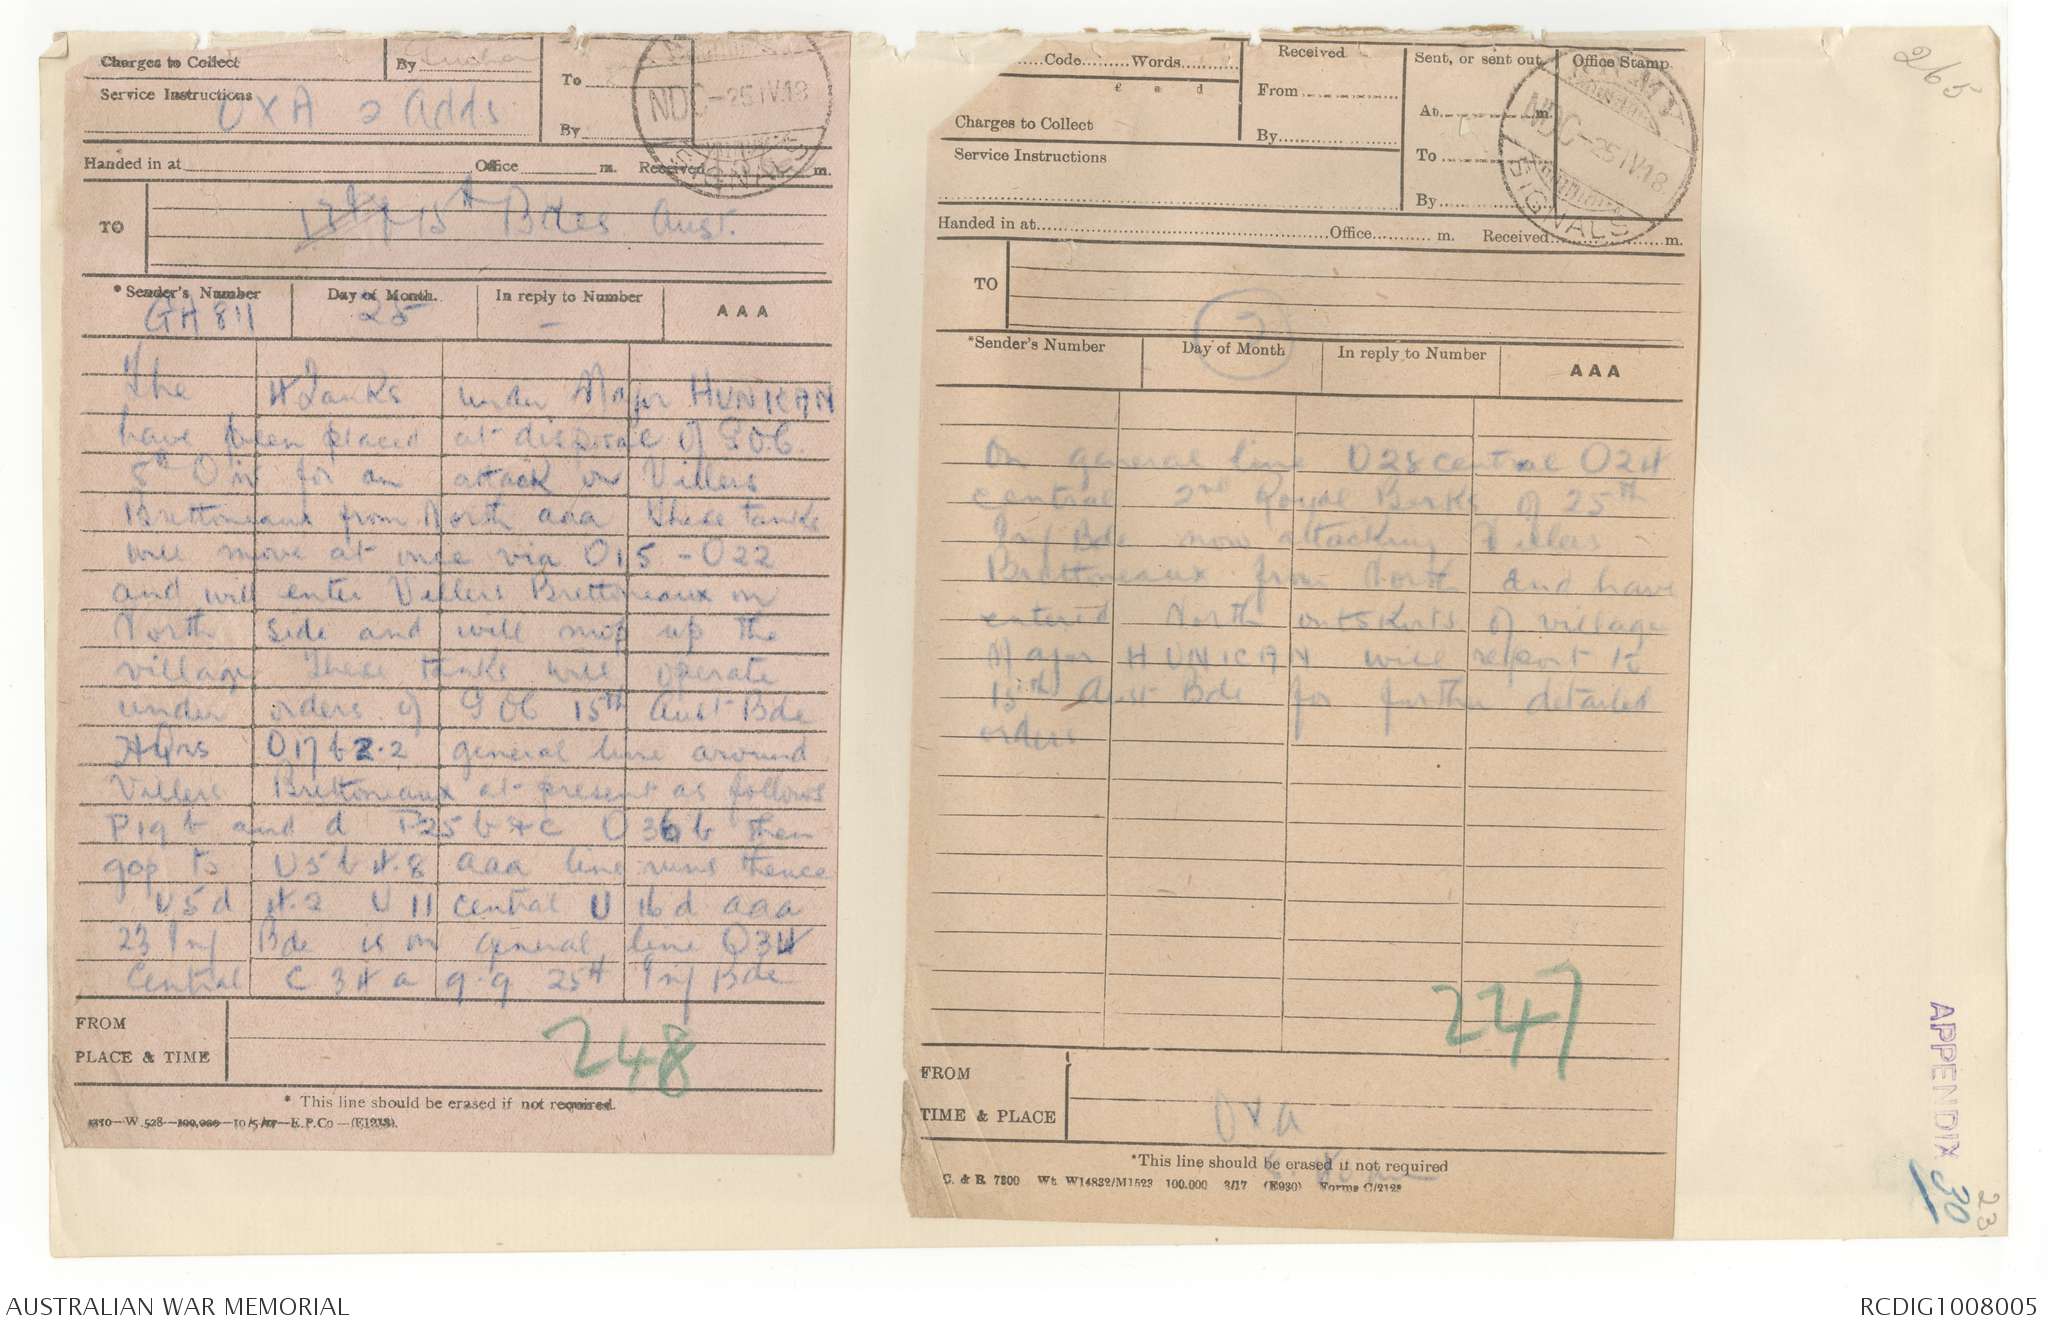 Charges to Collect
By
To
Service Instructions
O X A 2 Adds
By
NDC-25 IV.18
SIGNALS
Handed in at Office m. Received m.
TO
13th & 15th Bdes Aust.
* Sender's Number
Day of Month.
In reply to Number
AAA
GA 811
25
-
The 4 Tanks under Major HUNICAN
have been placed at disposal of GOC
5th Div for an attack on Villers
Brettoneaux from North aaa These tanks
will move at once via O15 - O22
and will enter Villers Brettoneaux on
North side and will mop up the
village These tanks will operate
under orders of GOC 15th Aust Bde
HQrs O17b2.2 general line around
Villers Brettoneaux at present as follows
P19 b and d P25 b & c O36b then
gap to U5b4.8 aaa line runs thence
U5d 4.2 U11 central U16d aaa
23 Inf Bde is on general line O34
Central C 34 a 9.9 25th Inf Bde
FROM
PLACE & TIME
248
* This line should be erased if not required.
W 528—100,000—10/5/17—E.P.Co—(E1213).
Code Words
£ s d
Charges to Collect
Service Instructions
Received
From
By
Sent, or sent out
At m.
To
By
Office Stamp.
ARMY
NDC-25 IV.18
SIGNALS
Handed in at Office m. Received m.
TO
2
*Sender's Number
Day of Month
In reply to Number
AAA
On general line U28central O24
central 2nd Royal Berks of 25th
Inf Bde now attacking Villers
Brettoneaux from North and have
entered North outskirts of village
Major HUNICAN will report to
15th Aust Bde for further detailed
orders
247
FROM
TIME & PLACE
O X A
*This line should be erased if not required
C. & R. 7300 Wt. W14832/M1523 100.000 3/17 (E930) Forms C/2123
265
APPENDIX 30
23
AUSTRALIAN WAR MEMORIAL
RCDIG1008005